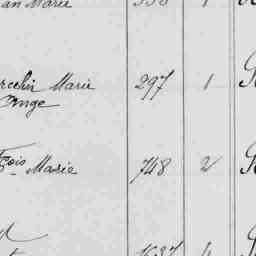 an Marie 558 1
rcelin Marie 297 1
Ange
Fçois Marie 748 2
1637 4